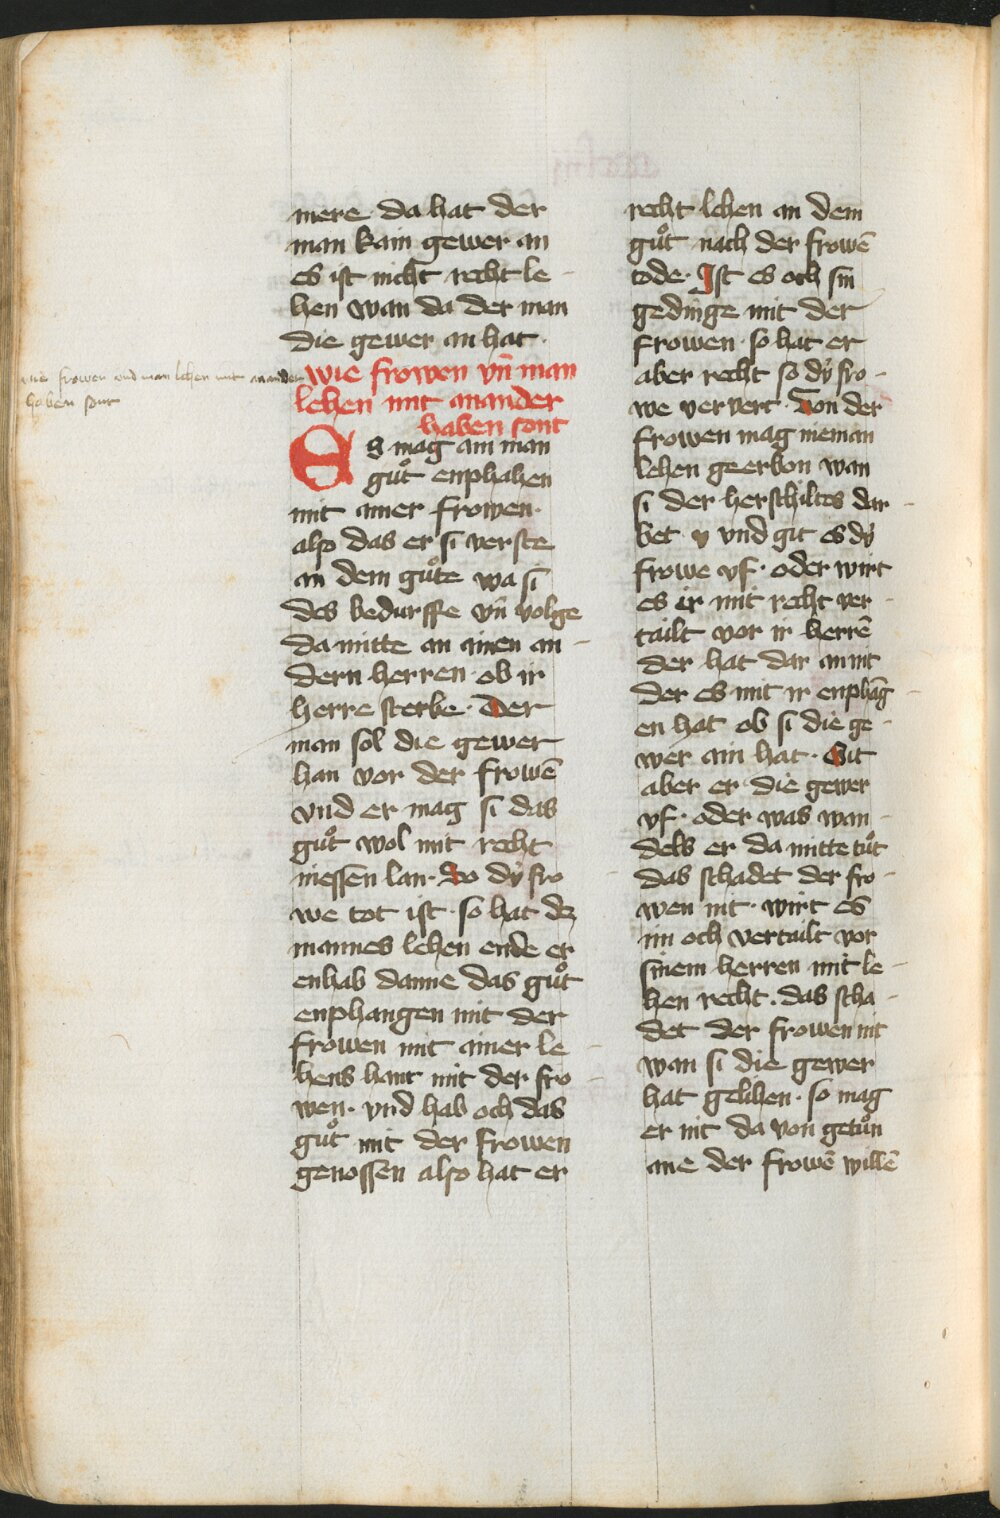 mere da hat der
man kain gewer an
es ist nicht recht le-
hen wan da der man
die gewer an hat.
wie frowen vn̄ man lehen mit ananden
haben sont
wie frowen vn̄ man
lehen mit anander
haben sont
Es mag ain man
guͦt enphahen
mit ainer frowen.
also das er si verste
an dem guͦte wa si
des bedurffe vn̄ volge
da mitte an ainen an-
dern herren. ob ir
herre sterbe. Der
man sol die gewer
han vor der frowē
vnd er mag si das
guͦt wol mit recht
niessen lan. So dÿ fro-
we tot ist. so hat dez
mannes lehen ende er
enhab danne das guͦt
enphangen mit der
frowen mit ainer le-
hens hant mit der fro-
wen. vnd hab och das
guͦt mit der frowen
genossen also hat er
recht lehen an dem
guͦt nach der frowē
tode. Ist es och sin
gedinge mit der
frowen. so hat er
aber recht so dÿ fro-
we ververt. Von der
frowen mag nieman
lehen geerbon wan
si der herschiltes dar-
bet v vnd git es dÿ
frowe vf. oder wirt
es ir mit recht ver-
tailt vor ir herrē
der hat dar an nit
der es mit ir enphāg-
en hat ob si die ge-
wer ain hat. Git
aber er die gewer
vf. oder was wan-
dels er da mitte tuͦt
das schadet der fro-
wen nit. wirt es
im och vertailt vor
sinem herren mit le-
hen recht. das scha-
det der frowen nit
wan si die gewer
hat gelihen. so mag
er nit da von getuͦn
ane der frowē willē